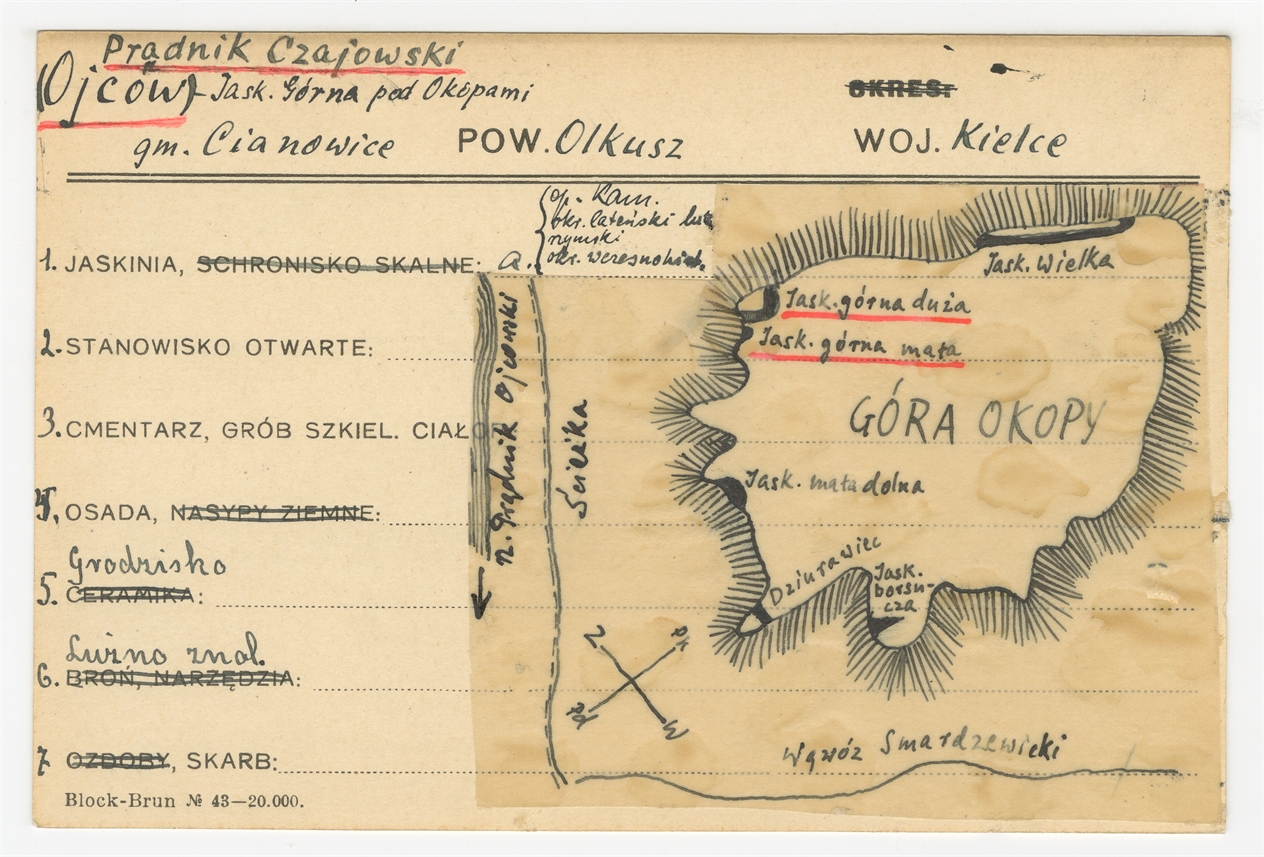 Prądnik Czajowski
(Ojców) Jask. Górna pod Okopami
OKRES:
gm. Cianowice POW. Olkusz WOJ. Kielce
ep. Kam.
okr. lateński lub
rzymski
okr. wczesnohist.
1. JASKINIA, SCHRONISKO SKALNE: a.
2. STANOWISKO OTWARTE:
3. CMENTARZ, GRÓB SZKIEL. CIAŁO
4. OSADA, NASYPY ZIEMNE:
Grodzisko
5. CERAMIKA:
Luźno znal.
6. BROŃ, NARZĘDZIA:
7 OZDOBY, SKARB:
Block-Brun № 43—20.000.
rz. Prądnik Ojcowski
Ścieżka
Jask. Wielka
Jask. górna duża
Jask. górna mała
GÓRA OKOPY
Jask. mała dolna
Dziurawiec
Jask.
borsu-
cza
Wąwóz Smardzewicki